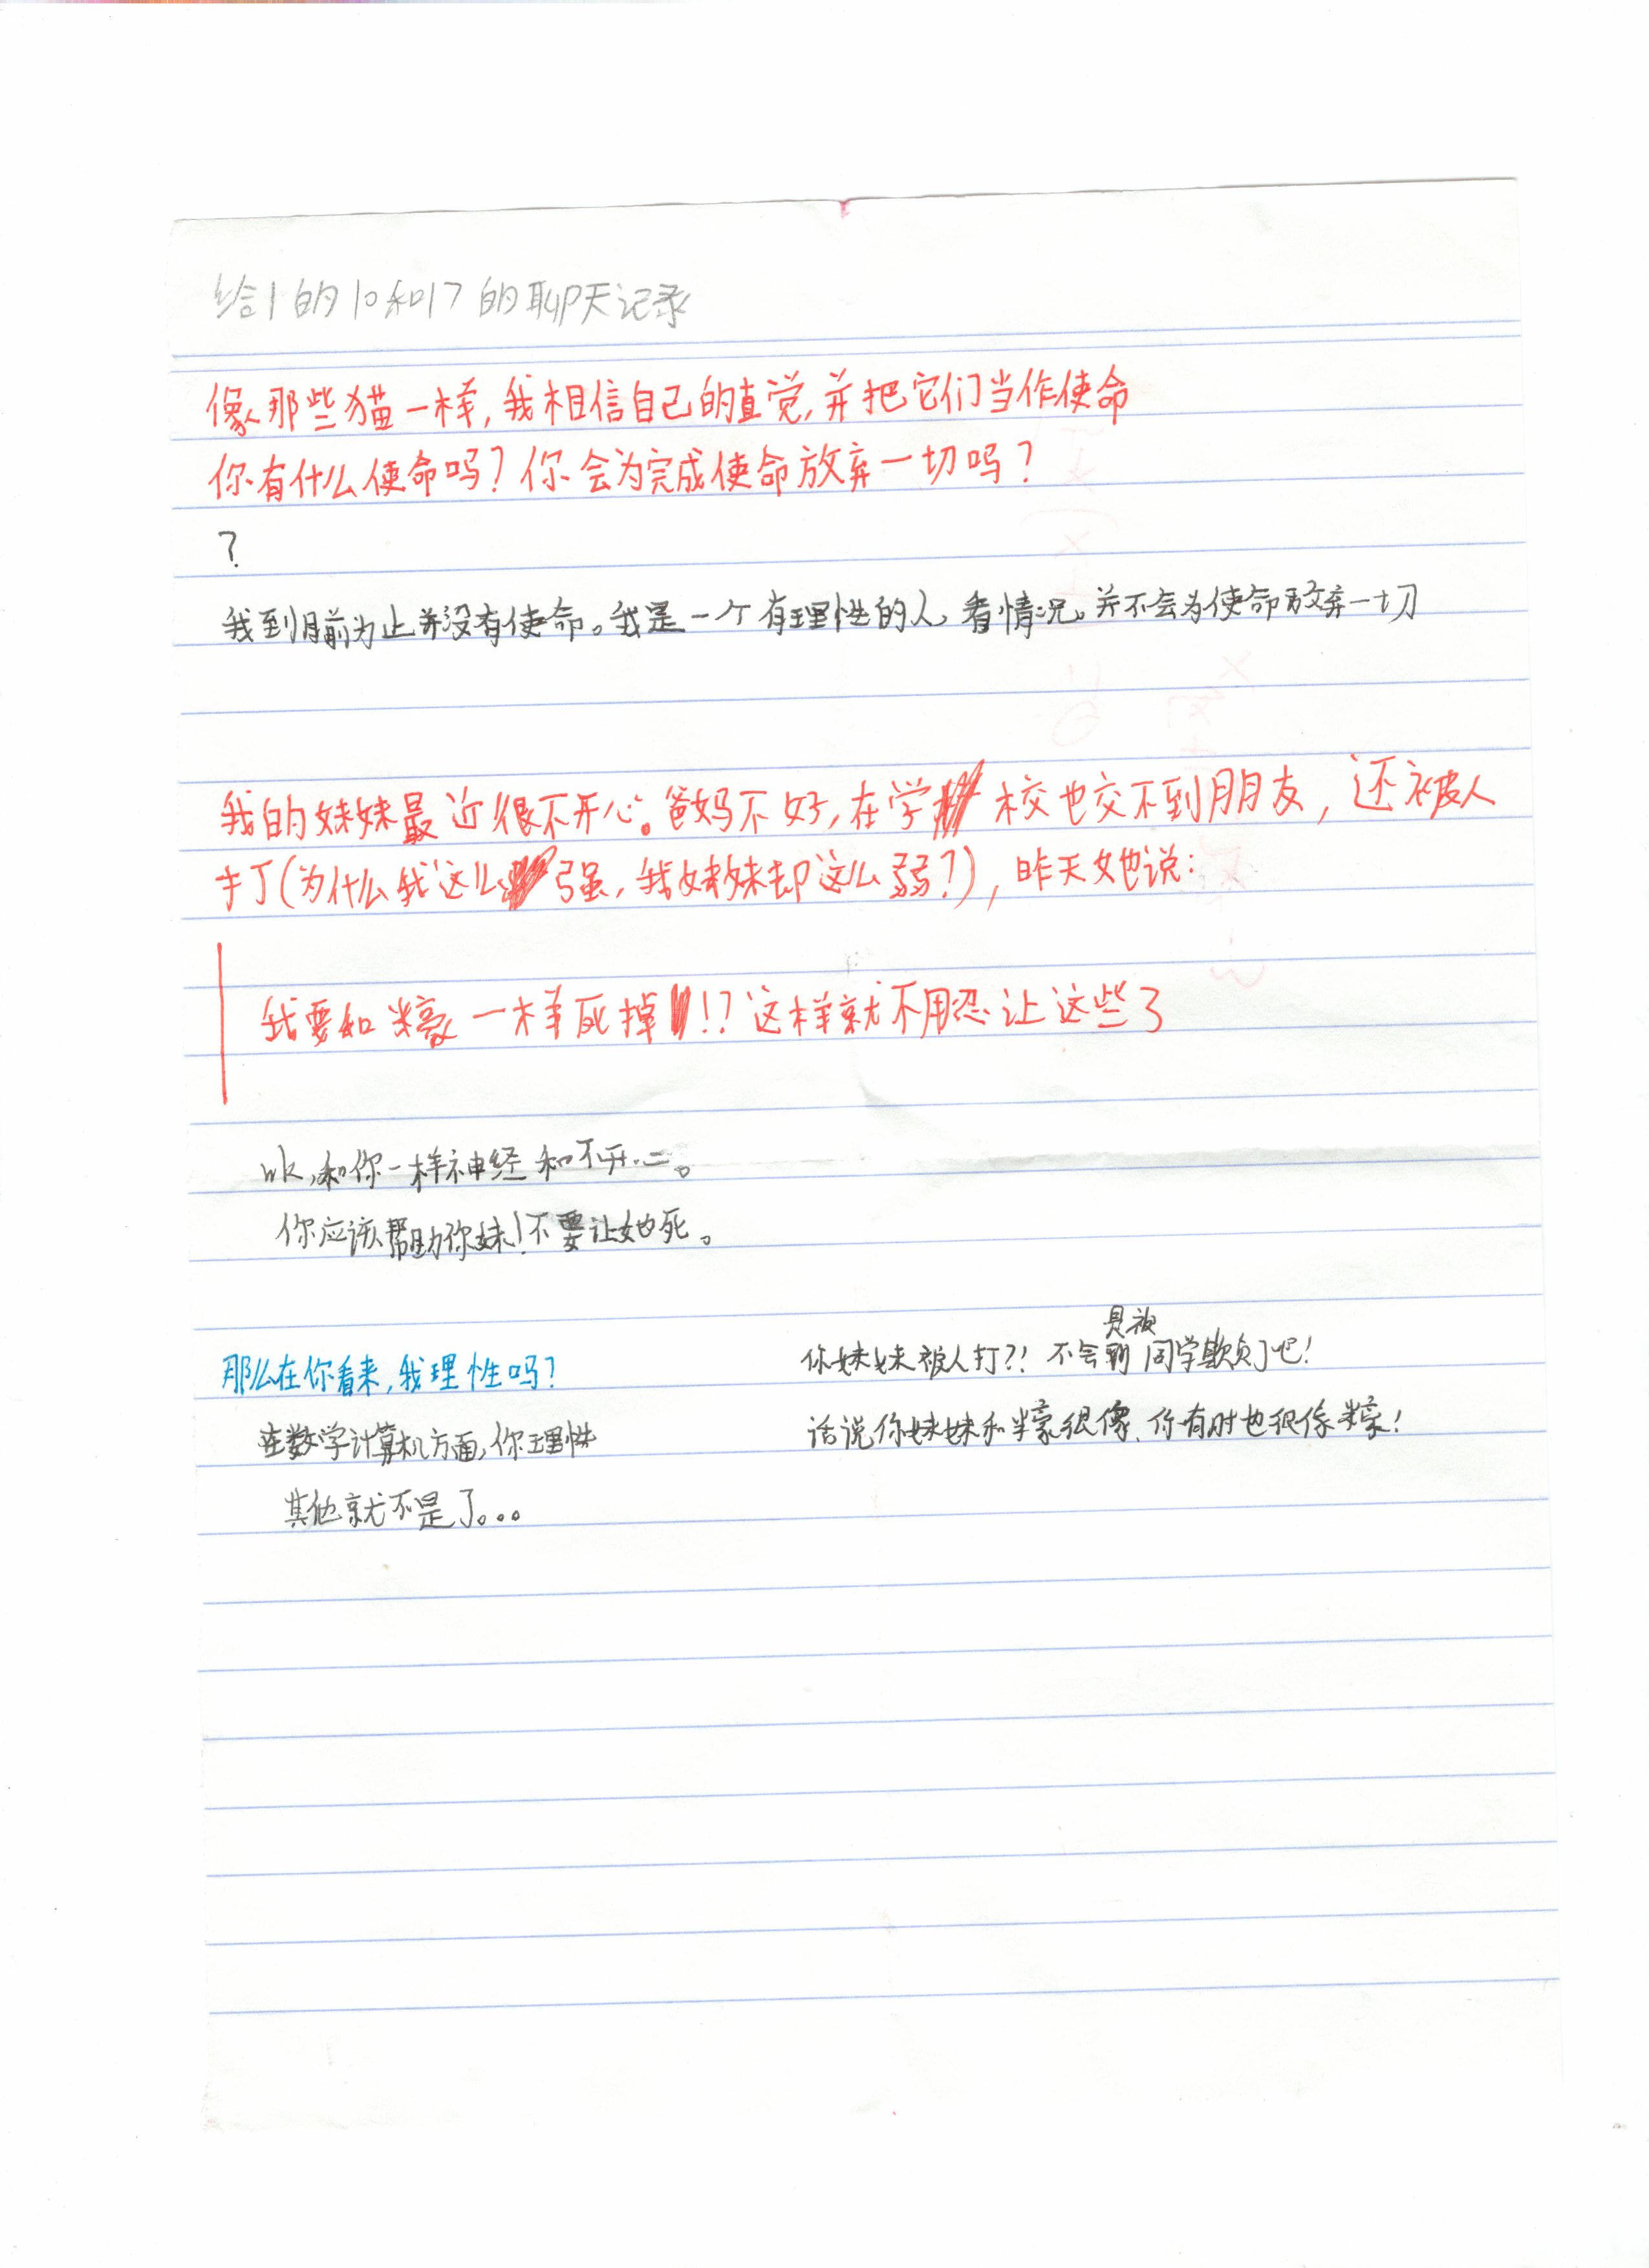 给1的10和17的聊天记录
像那些猫一样,我相信自己的直觉,并把它们当作使命
你有什么使命吗?你会为完成使命放弃一切吗?
?
我到目前为止并没有使命。我是一个有理性的人,看情况。并不会为使命放弃一切
我的妹妹最近很不开心。爸妈不好,在学校也交不到朋友,还被人
打(为什么我这么强,我妹妹却这么弱?),昨天她说:
我要如米豪一样死掉!?这样就不用忍让这些了
,和你一样神经和不开心。
你应该帮助你妹!不要让她死。
那么在你看来,我理性吗?
在数学计算机方面,你理性
其他就不是了。。。
你妹妹被人打?!不会是被同学欺负了吧!
话说你妹妹和米豪很像、你有时也很像米豪!